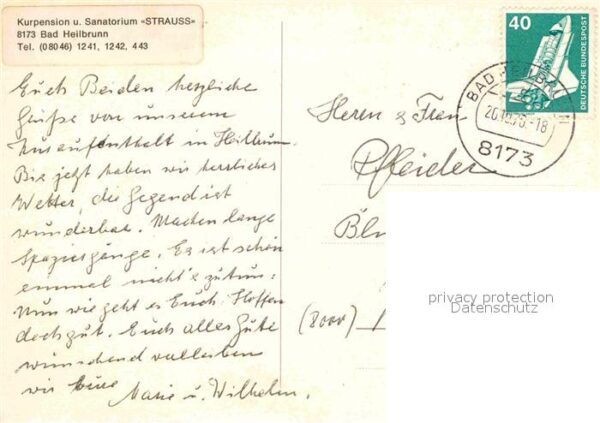 Kurpension u. Sanatorium «STRAUSS»
8173 Bad Heilbrunn
Tel. (08046) 1241, 1242, 443
Euch Beiden herzliche
Grüße von unserem
Aufenthalt in Heilbrunn.
Bis jetzt haben wir herrliches
Wetter, die Gegend ist
wunderbar. Machen lange
Spaziergänge. Es ist schön
einmal nichts zutun.
Nun wie geht es Euch. Hoffen
doch gut. Euch alles Gute
wünschend verbleiben
wir Eure
Marie u. Wilhelm.
40
DEUTSCHE BUNDESPOST
BAD
-18
8173
Herrn & Frau
Pfleider
(8000)
privacy protection
Datenschutz